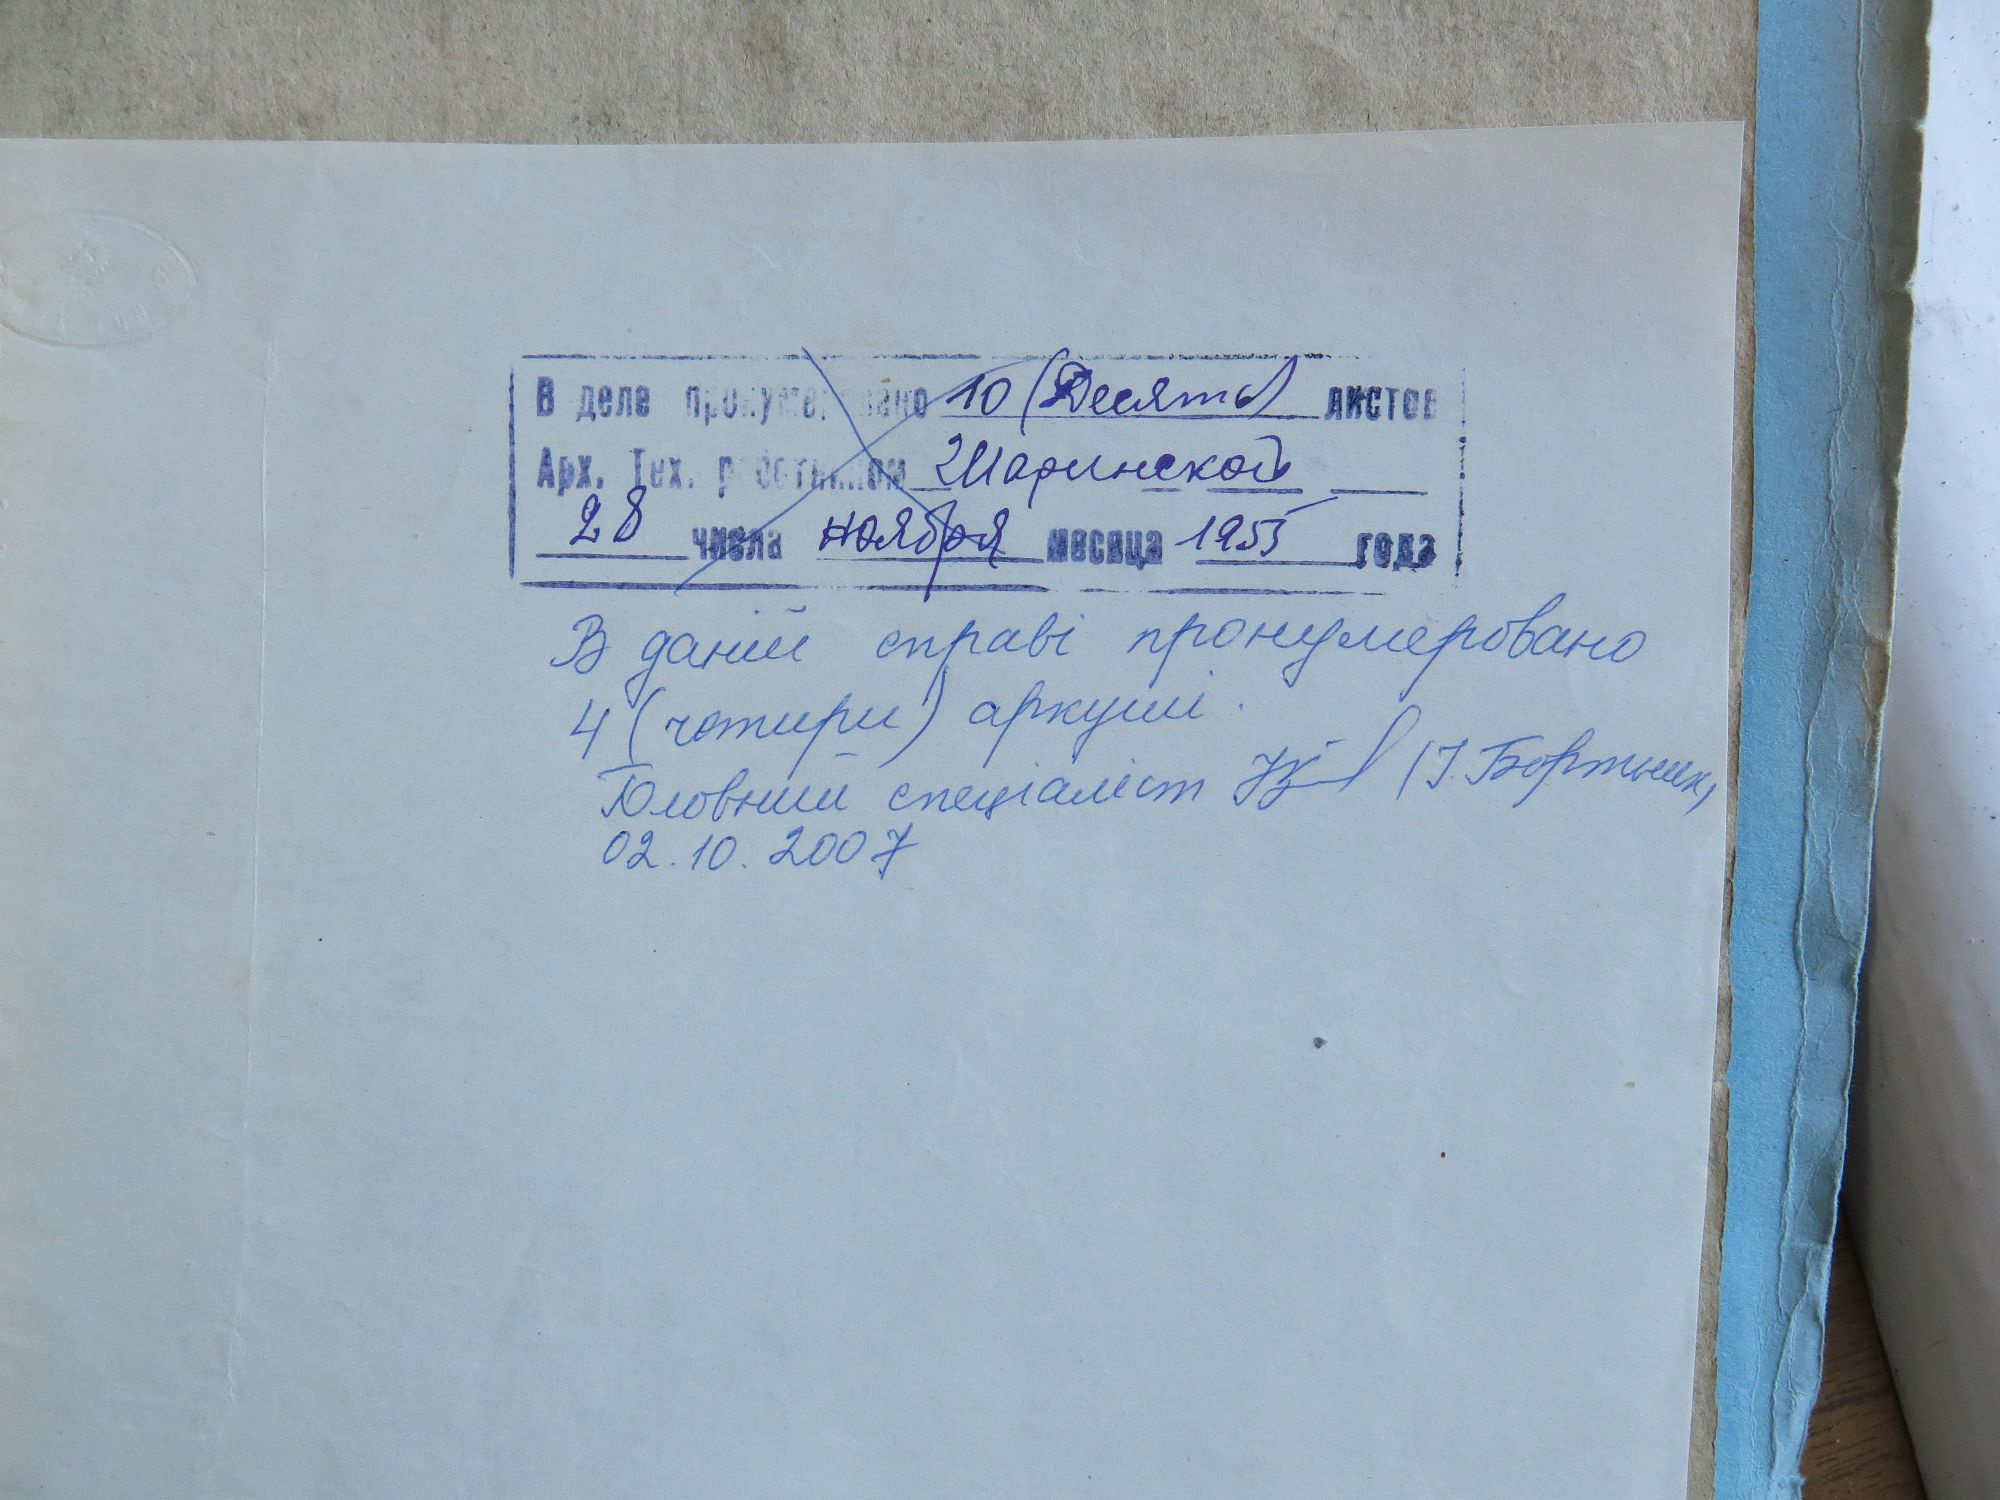 В деле пронумеровано 10 (Десять) листов
Арх. Тех. работником Шаринской
28 числа ноября месяца 1955 года
В даній справі пронумеровано
4 (чотири) аркуші.
Головний спеціаліст (І. Бортник)
02.10.2007